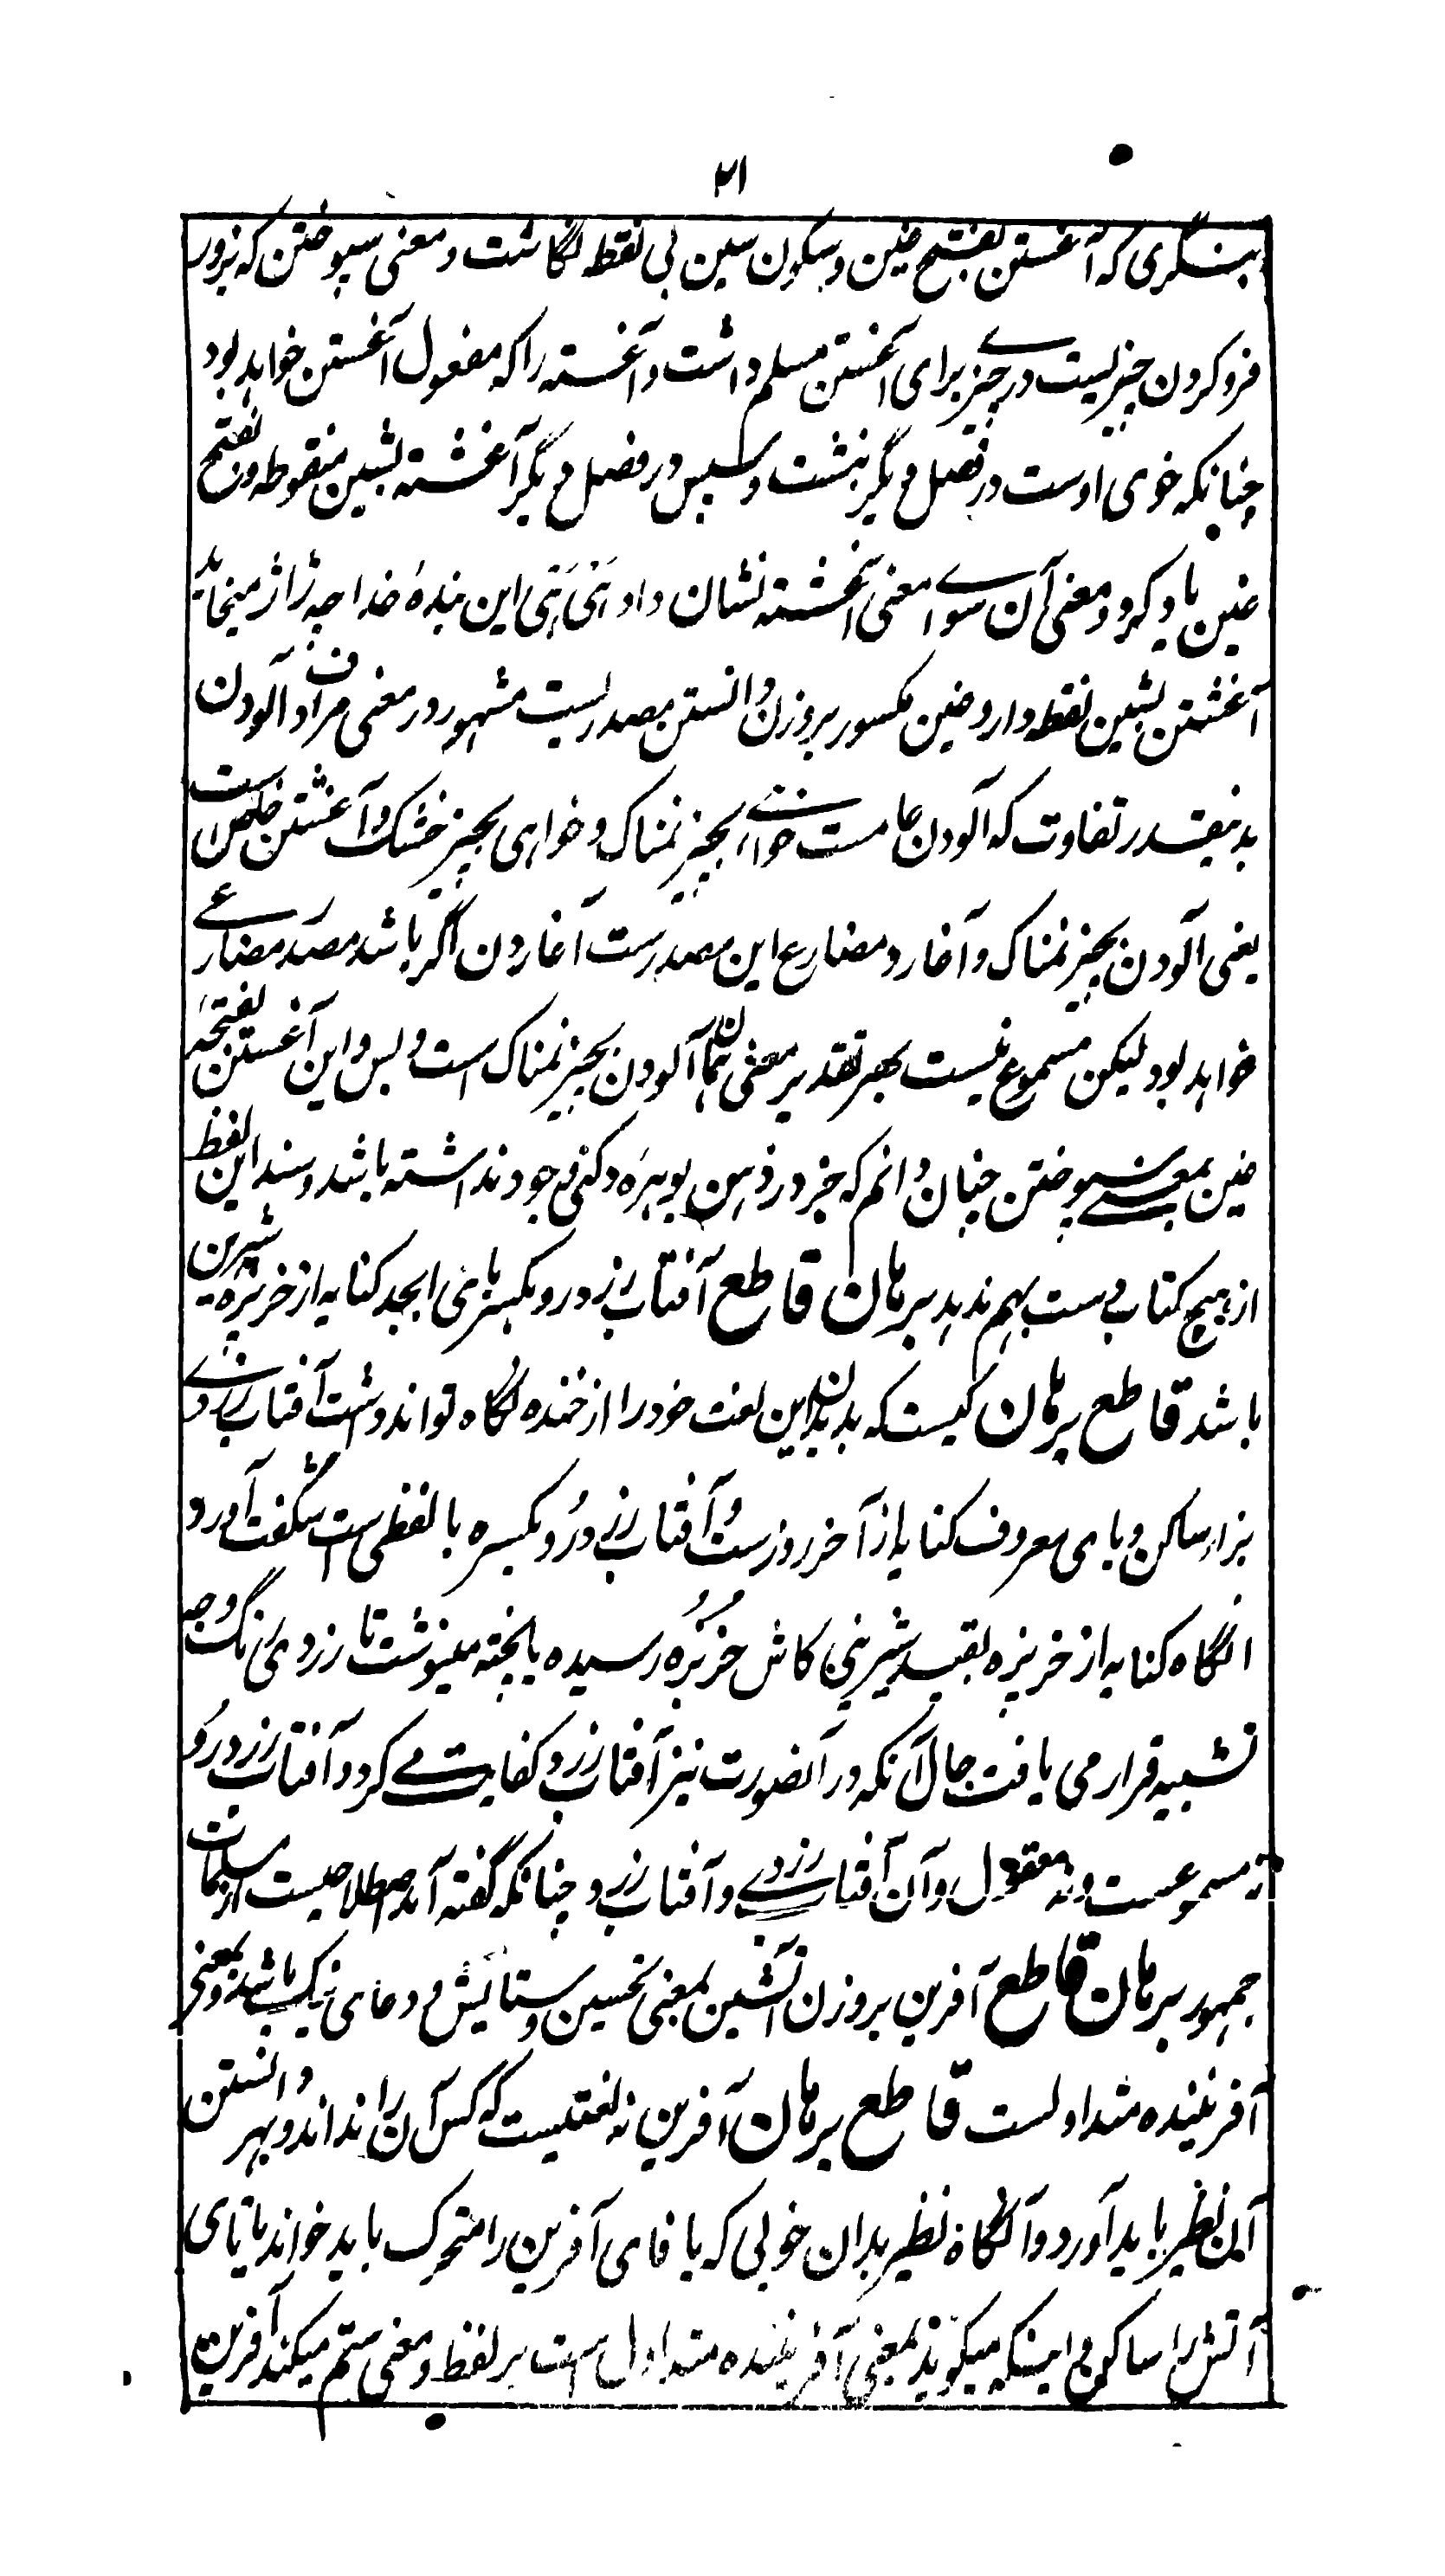 ۲۱
بنگری که آغستن بفتح غین و سکون سین بی نقطه نگاشت و معنی سپوختن که بزور
فرو کردن چیزیست در چیزے برای آغستن مسلم داشت و آغسته را که مفعول آغستن خواہد بود
چنانکه خوی اوست در فصل دیگر بنشت و سپس در فصل دیگر آغشته بشین منقوطه و نه بفتح
غین یاد کرد و معنی آن سواے معنی آغشته نشان داد ہَی ہَی این بندۂ خدا چه ژاژ میخاید
آغشتن بشین نقطه دار و غین مکسور بر وزن دانستن مصدریست مشہور و در معنی مرادف آلودن
بدینقدر تفاوت که آلودن عامست خواہے بچیز نمناک و خواہی بچیز خشک و آغشتن خاص ست
یعنی آلودن بچیز نمناک و آغارد مضارع این مصدرست آغاردن اگر باشد مصدر مضارعے
خواہد بود لیکن مسموع نیست بہر تقدیر معنی ہمان آلودن بچیز نمناک است و بس و این آغستن بفتحۂ
غین بمعنے سپوختن چنان دانم که جز در ذہن بوہرۂ دکنی وجود نداشته باشد و سند این لفظ
از ہیچ کتاب دست بہم ندہد برہان قاطع آفتاب زرد رو بکسر بای ابجد کنایه از خربزۂ شیرین
باشد قاطع برہان کیست که بدیدن این لغت خود را از خنده نگاه تواند داشت آفتاب زردے
بزاء ساکن و یای معروف کنایه از آخر روزست و آفتاب زرد رُو بکسرہ با لفظی ست شگفت آورد
انگاه کنایه از خربزه بقید شیرینی کاش خربُزه رسیده یا پخته مینوشت تا زردی رنگ وجه
تشبیه قرار می یافت حال آنکه در آنصورت نیز آفتاب زرد کفایت مے کرد و آفتاب زرد رُو
نه مسموعست و نه معقول و آن آفتاب زردے و آفتاب زرد چنانکه گفته آمد اصطلاحیست از مسلمات
جمہور برہان قاطع آفرین بروزن آتشین بمعنی تحسین و ستایش و دعای نیک باشد و بمعنی
آفریننده متداولست قاطع برہان آفرین نه لغتیست که کس آن را نداند و بہر دانستن
آن نظیر باید آورد و آنگاه نظیر بدان خوبی که یا فای آفرین را متحرک باید خواند یا تای
آتش را ساکن و اینکه میگوید بمعنی آفریننده متداول است بر لفظ و معنی ستم میکند آفرین